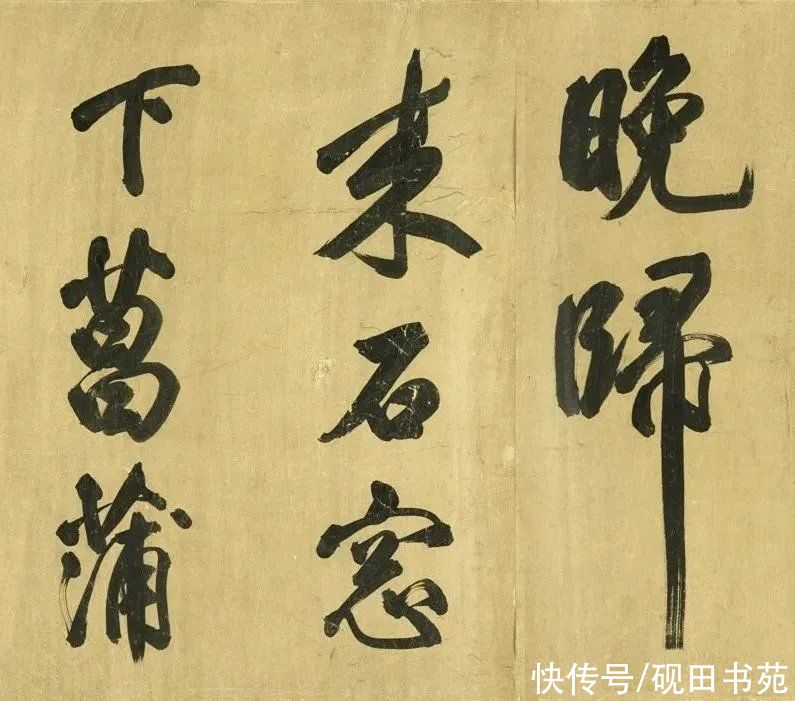 晚歸
来石窓
下菖蒲
快传号/砚田书苑